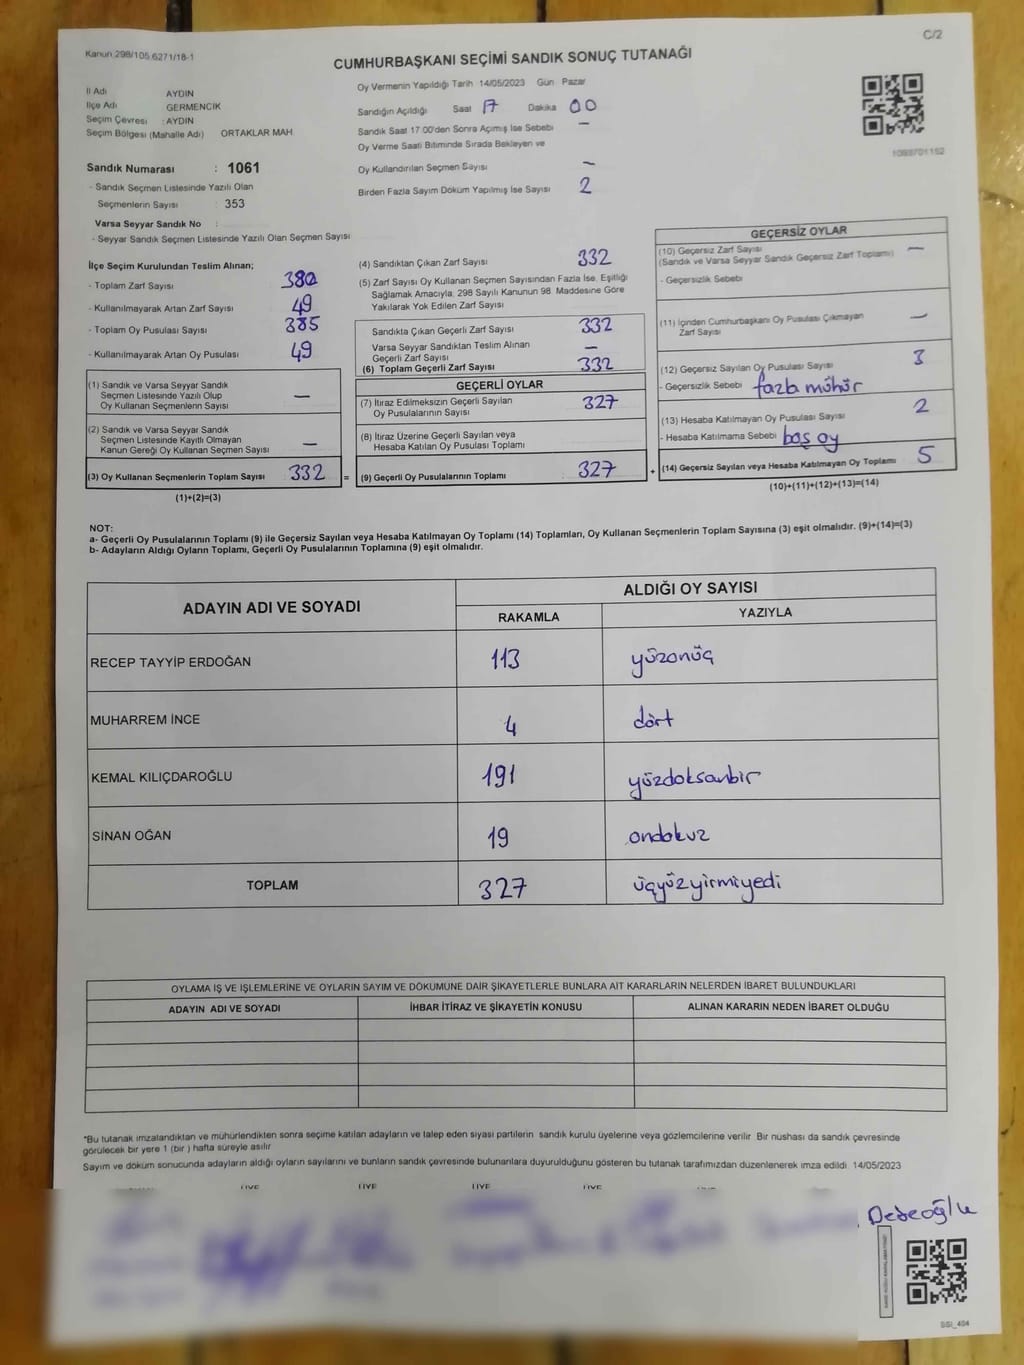 Kanun 298/105,6271/18-1
C/2
CUMHURBAŞKANI SEÇİMİ SANDIK SONUÇ TUTANAĞI
İl Adı AYDIN
İlçe Adı GERMENCİK
Seçim Çevresi : AYDIN
Seçim Bölgesi (Mahalle Adı) ORTAKLAR MAH
Sandık Numarası : 1061
- Sandık Seçmen Listesinde Yazılı Olan
Seçmenlerin Sayısı : 353
Varsa Seyyar Sandık No :
- Seyyar Sandık Seçmen Listesinde Yazılı Olan Seçmen Sayısı
Oy Vermenin Yapıldığı Tarih 14/05/2023 Gün Pazar
Sandığın Açıldığı Saat 17 Dakika 00
Sandık Saat 17.00'den Sonra Açımış İse Sebebi —
Oy Verme Saati Bitiminde Sırada Bekleyen ve
Oy Kullandırılan Seçmen Sayısı —
Birden Fazla Sayım Döküm Yapılmış İse Sayısı 2
1098701152
İlçe Seçim Kurulundan Teslim Alınan;
- Toplam Zarf Sayısı 380
- Kullanılmayarak Artan Zarf Sayısı 49
- Toplam Oy Pusulası Sayısı 385
- Kullanılmayarak Artan Oy Pusulası 49
(1) Sandık ve Varsa Seyyar Sandık
Seçmen Listesinde Yazılı Olup
Oy Kullanan Seçmenlerin Sayısı —
(2) Sandık ve Varsa Seyyar Sandık
Seçmen Listesinde Kayıtlı Olmayan
Kanun Gereği Oy Kullanan Seçmen Sayısı —
(3) Oy Kullanan Seçmenlerin Toplam Sayısı 332 =
(1)+(2)=(3)
(4) Sandıktan Çıkan Zarf Sayısı 332
(5) Zarf Sayısı Oy Kullanan Seçmen Sayısından Fazla İse, Eşitliği
Sağlamak Amacıyla, 298 Sayılı Kanunun 98. Maddesine Göre
Yakılarak Yok Edilen Zarf Sayısı
Sandıkta Çıkan Geçerli Zarf Sayısı 332
Varsa Seyyar Sandıktan Teslim Alınan
Geçerli Zarf Sayısı —
(6) Toplam Geçerli Zarf Sayısı 332
GEÇERLİ OYLAR
(7) İtiraz Edilmeksizin Geçerli Sayılan
Oy Pusulalarının Sayısı 327
(8) İtiraz Üzerine Geçerli Sayılan veya
Hesaba Katılan Oy Pusulası Toplamı
(9) Geçerli Oy Pusulalarının Toplamı 327 +
GEÇERSİZ OYLAR
(10) Geçersiz Zarf Sayısı —
(Sandık ve Varsa Seyyar Sandık Geçersiz Zarf Toplamı)
- Geçersizlik Sebebi
(11) İçinden Cumhurbaşkanı Oy Pusulası Çıkmayan
Zarf Sayısı —
(12) Geçersiz Sayılan Oy Pusulası Sayısı 3
- Geçersizlik Sebebi fazla mühür
(13) Hesaba Katılmayan Oy Pusulası Sayısı 2
- Hesaba Katılmama Sebebi boş oy
(14) Geçersiz Sayılan veya Hesaba Katılmayan Oy Toplamı 5
(10)+(11)+(12)+(13)=(14)
NOT:
a- Geçerli Oy Pusulalarının Toplamı (9) ile Geçersiz Sayılan veya Hesaba Katılmayan Oy Toplamı (14) Toplamları, Oy Kullanan Seçmenlerin Toplam Sayısına (3) eşit olmalıdır. (9)+(14)=(3)
b- Adayların Aldığı Oyların Toplamı, Geçerli Oy Pusulalarının Toplamına (9) eşit olmalıdır.
ADAYIN ADI VE SOYADI ALDIĞI OY SAYISI
RAKAMLA YAZIYLA
RECEP TAYYİP ERDOĞAN 113 yüzonüç
MUHARREM İNCE 4 dört
KEMAL KILIÇDAROĞLU 191 yüzdoksanbir
SİNAN OĞAN 19 ondokuz
TOPLAM 327 üçyüzyirmiyedi
OYLAMA İŞ VE İŞLEMLERİNE VE OYLARIN SAYIM VE DÖKÜMÜNE DAİR ŞİKAYETLERLE BUNLARA AİT KARARLARIN NELERDEN İBARET BULUNDUKLARI
ADAYIN ADI VE SOYADI İHBAR İTİRAZ VE ŞİKAYETİN KONUSU ALINAN KARARIN NEDEN İBARET OLDUĞU
*Bu tutanak imzalandıktan ve mühürlendikten sonra seçime katılan adayların ve talep eden siyasi partilerin sandık kurulu üyelerine veya gözlemcilerine verilir. Bir nüshası da sandık çevresinde
görülecek bir yere 1 (bir ) hafta süreyle asılır.
Sayım ve döküm sonucunda adayların aldığı oyların sayılarını ve bunların sandık çevresinde bulunanlara duyurulduğunu gösteren bu tutanak tarafımızdan düzenlenerek imza edildi. 14/05/2023
ÜYE ÜYE ÜYE ÜYE
Dedeoğlu
SSI_404